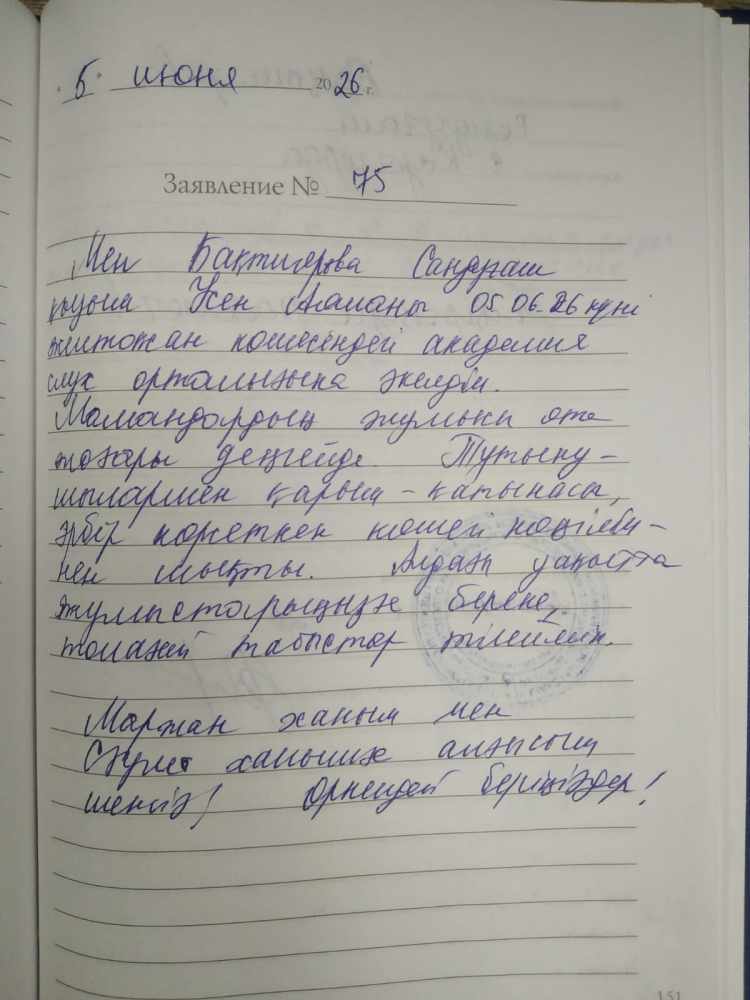 5 июня 2026 г.
Заявление № 75
Мен Бактигерова Сандуғаш
қызым Усен Аяланы 05.06.26 күні
жилтожан көшесіндегі академия
слух орталығына әкелдім.
Мамандардың жұмысы өте
жоғары деңгейде. Тұтыну-
шылармен қарым-қатынасы,
әрбір көрсеткен көмегі көңілімі-
нен шықты. Алдағы уақытта
жұмыстарыңызға береке,
толағай табыстар тілеймін.
Маржан ханым мен
ханымға алғысым
шексіз! Өркендей беріңіздер!
151